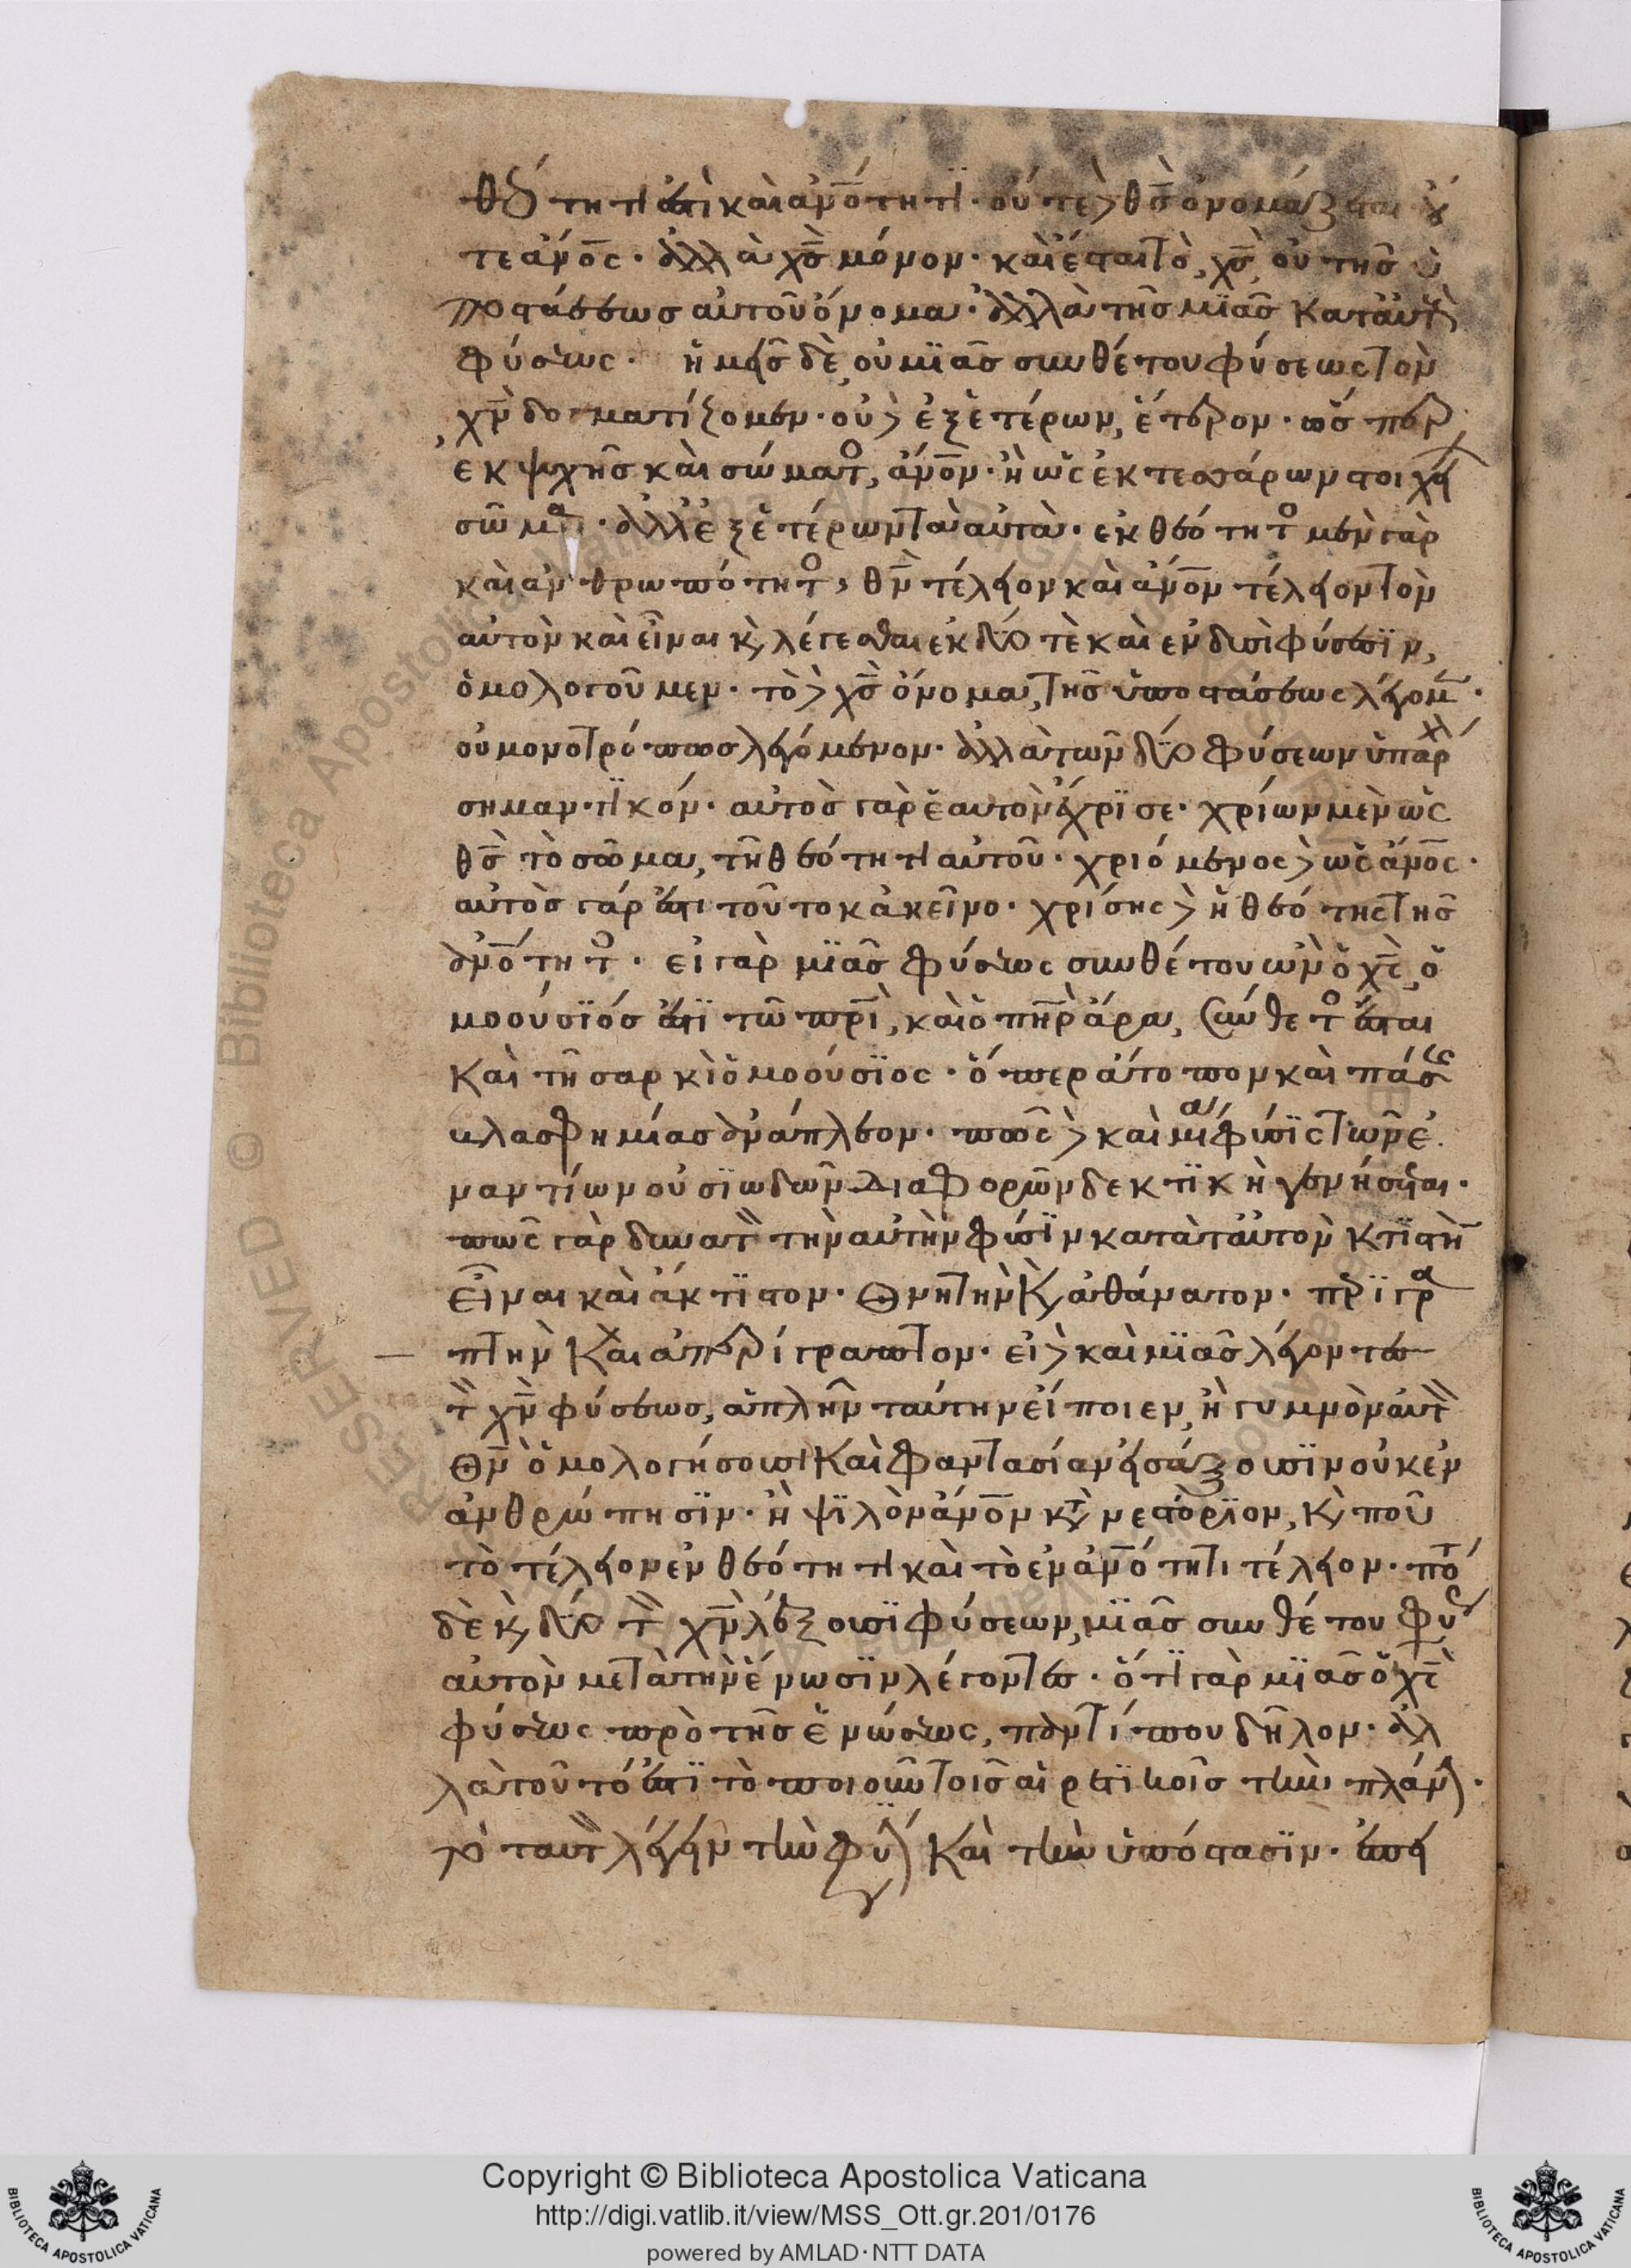 θεότητι ἐστὶ καὶ ἀν̅ότητι· οὔτε δὲ θς̅ ὀνομάζεται οὔ
τε ἀν̅ος· ἀλλὰ χς̅ μόνον· καὶ ἔσται τὸ χς̅, οὐ τῆς ὑ
ποστάσεως αὐτοῦ ὄνομα· ἀλλὰ τῆς μϊᾶς κατ αὐτοὺς
φύσεως· ἡμεῖς δὲ, οὐ μϊᾶς συνθέτου φύσεως τὸν
χν̅ δογματίζομεν· οὐδὲ ἐξ ἑτέρων, ἕτερον· ὥσπερ
ἐκ ψυχῆς καὶ σώματος, ἀν̅ον· ἢ ὡς ἐκ τεσσάρων στοιχεί
σῶμα· ἀλλ ἐξ ἑτέρων τὰ αὐτὰ· ἐκ θεότητος μὲν γὰρ
καὶ ἀνθρωπότητος, θν̅ τέλειον καὶ ἀν̅ον τέλειον τὸν
αὐτὸν καὶ εἶναι κ λέγεσθαι ἐκ δύο τὲ καὶ ἐν δυσὶ φύσεσϊν,
ὁμολογοῦμεν· τὸ δὲ χς̅ ὄνομα, τῆς ὑποστάσεως λέγομεν·
οὐ μονοτρόπως λεγόμενον· ἀλλὰ τῶν δύο φύσεων ὑπάρχ
σημαντϊκόν· αὐτὸς γὰρ ἑαυτὸν ἔχρϊσε· χρίων μὲν ὡς
θς̅ τὸ σῶμα, τῆ θεότητι αὐτοῦ· χριόμενος δὲ ὡς ἀν̅ος·
αὐτὸς γάρ ἐστι τοῦτο κἀκεῖνο· χρίσης δὲ ἡ θεότης τῆς
ἀν̅ότητος· εἰ γὰρ μϊᾶς φύσεως συνθέτου ὢν ὁ χς̅, ὁ
μοούσϊός ἐστϊ τῶ πρι̅, καὶ ὁ πη̅ρ ἄρα, σύνθετος ἔσται
καὶ τῆ σαρκὶ ὁμοούσϊος· ὅπερ ἄτοπον καὶ πάσης
βλασφημίας ἀνάπλεον· πῶς δὲ καὶ μία φύσϊς τῶν ἐ
ναντίων οὐσϊωδῶν διαφορῶν δεκτϊκὴ γενήσεται·
πῶς γὰρ δυνατὸν τὴν αὐτὴν φύσϊν κατὰ ταὐτὸν κτϊστὴν
εἶναι καὶ ἄκτϊστον· θνητὴν κ ἀθάνατον· περϊγρα
πτὴν καὶ ἀπερίγραπτον· εἰ δὲ καὶ μϊᾶς λέγοντες
τὸν χν̅ φύσεως, ἁπλῆν ταύτην εἴποιεν, ἢ γυμνὸν αὐτὸν
θν̅ ὁμολογήσουσι καὶ φαντασίαν εἰσάξουσϊν οὐκ ἐν
ἀνθρώπησϊν· ἢ ψϊλὸν ἀν̅ον κτ νεστόρϊον, κ ποῦ
τὸ τέλειον ἐν θεότητι καὶ τὸ ἐν ἀν̅ότητι τέλειον· πότ
δὲ κ δύο τὸν χν̅ λέξουσϊ φύσεων, μϊᾶς συνθέτου φύσ
αὐτὸν μετὰ τὴν ἕνωσϊν λέγοντες· ὅτϊ γὰρ μϊᾶς ὁ χς̅
φύσεως πρὸ τῆς ἑνώσεως, παντί που δῆλον· ἀλ
λὰ τοῦτό ἐστϊ τὸ ποιοῦν τοῖς αἱρετϊκοῖς τὴν πλάνην·
τὸ ταυτὸν λέγειν τὴν φύσϊν καὶ τὴν ὑπόστασϊν· ἐπεὶ
Copyright © Biblioteca Apostolica Vaticana
http://digi.vatlib.it/view/MSS_Ott.gr.201/0176
powered by AMLAD·NTT DATA